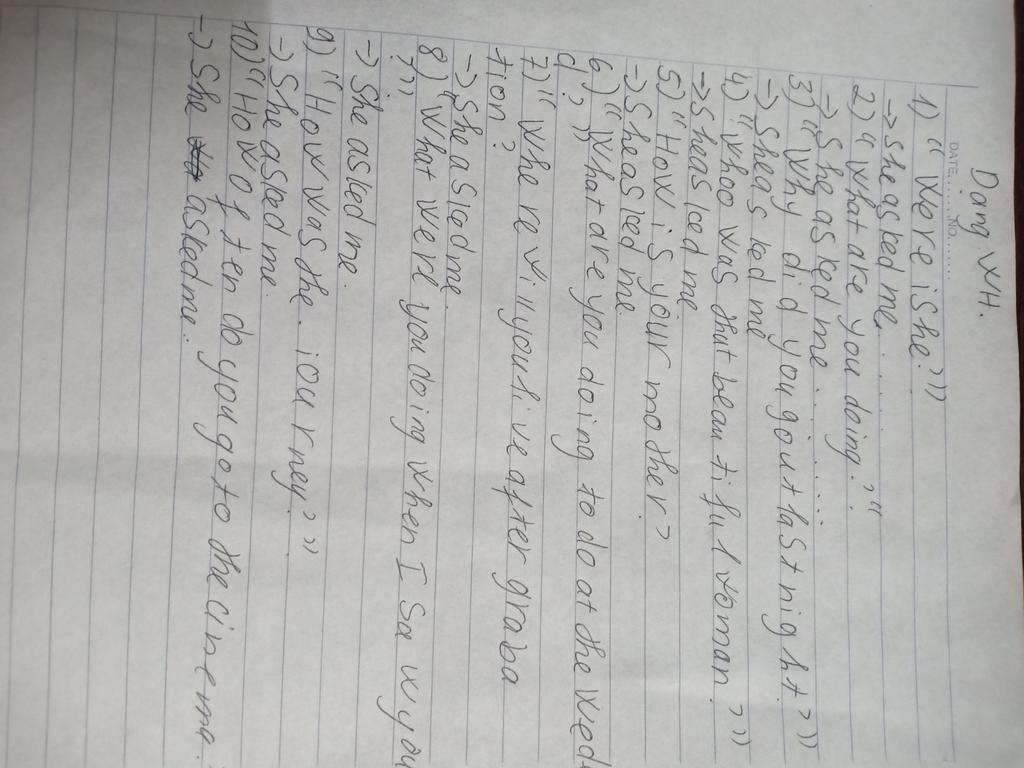 Dạng WH.
DATE......NO......
1) "Were is he?"
-> she asked me.........
2) "What are you doing?"
-> She asked me..........
3) "Why did you go ut last night?"
-> She asked me
4) "Whoo was that beautiful woman?"
-> She asked me.
5) "How is your mother?
-> She asked me
6) "What are you doing to do at the Wed
d?"
7) "Where will you live after graba
tion?
-> She asked me.
8) "What were you doing when I saw you
?"
-> She asked me.
9) "How was the journey?"
-> She asked me.
10) "How often do you go to the cinema?
-> She asked me.